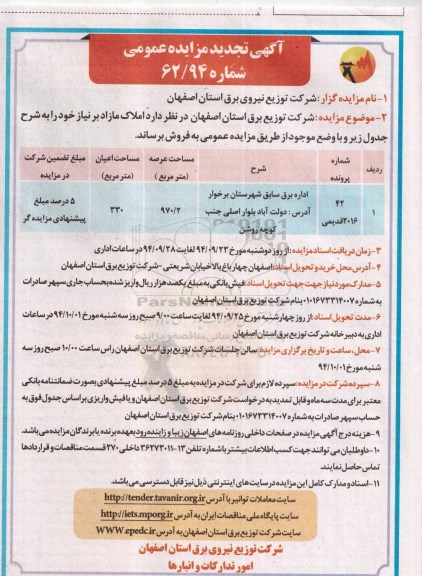 آگهی تجدید مزایده عمومی
شماره ۶۲/۹۴
۱-نام مزایده گزار: شرکت توزیع نیروی برق استان اصفهان
۲-موضوع مزایده: شرکت توزیع برق استان اصفهان در نظر دارد املاک مازاد بر نیاز خود را به شرح
جدول زیر و با وضع موجود از طریق مزایده عمومی به فروش برساند.
ردیف
شماره پرونده
شرح
مساحت عرصه (متر مربع)
مساحت اعیان (متر مربع)
مبلغ تضمین شرکت در مزایده
۱
۴۲ ۲۰۱۶قدیمی
اداره برق سابق شهرستان برخوار
آدرس: دولت آباد بلوار اصلی جنب
کوچه روشن
۹۷۰/۲
۳۳۰
۵ درصد مبلغ پیشنهادی مزایده گر
۳-زمان دریافت اسناد مزایده: از روز دوشنبه مورخ ۹۴/۰۹/۲۳ لغایت ۹۴/۰۹/۲۸ در ساعات اداری
۴-آدرس محل خرید و تحویل اسناد: اصفهان چهارباغ بالا خیابان شریعتی -شرکت توزیع برق استان اصفهان
۵-مدارک مورد نیاز جهت تحویل اسناد: فیش بانکی به مبلغ یکصد هزار ریال واریز شده بحساب جاری سپهر صادرات
به شماره ۰۱۰۱۶۷۳۳۱۴۰۰۷ بنام شرکت توزیع برق استان اصفهان
۶-مدت تحویل اسناد: از روز چهارشنبه مورخ ۹۴/۰۹/۲۵ لغایت ساعت ۹/۰۰ صبح روز سه شنبه مورخ ۹۴/۱۰/۰۱ در ساعات
اداری به دبیرخانه شرکت توزیع برق استان اصفهان
۷-محل، ساعت و تاریخ برگزاری مزایده: سالن جلسات شرکت توزیع برق استان اصفهان راس ساعت ۱۰/۰۰ صبح روز سه
شنبه مورخ ۹۴/۱۰/۰۱
۸-سپرده شرکت در مزایده: سپرده لازم برای شرکت در مزایده به مبلغ ۵ درصد مبلغ پیشنهادی بصورت ضمانتنامه بانکی
معتبر برای مدت سه ماه و قابل تمدید به درخواست شرکت توزیع برق استان اصفهان و یا فیش واریزی بر اساس جدول فوق به
حساب سپهر صادرات به شماره ۰۱۰۱۶۷۳۳۱۴۰۰۷ بنام شرکت توزیع برق استان اصفهان
۹-هزینه درج آگهی مزایده در صفحات داخلی روزنامه های اصفهان زیبا و زاینده رود بعهده برنده یا برندگان مزایده می باشد.
۱۰-داوطلبان می توانند جهت کسب اطلاعات بیشتر با شماره تلفن ۱۳-۳۶۲۷۳۰۱۱ داخلی ۲۷۰ قسمت مناقصات و قراردادها
تماس حاصل نمایند.
۱۱-اسناد و مدارک کامل این مزایده در سایت های اینترنتی ذیل نیز قابل دسترسی می باشد.
سایت معاملات توانیر با آدرس http://tender.tavanir.org.ir
سایت پایگاه ملی مناقصات ایران به آدرس http://iets.mporg.ir
سایت شرکت توزیع برق استان اصفهان به آدرس WWW.epedc.ir
شرکت توزیع نیروی برق استان اصفهان
امور تدارکات و انبارها